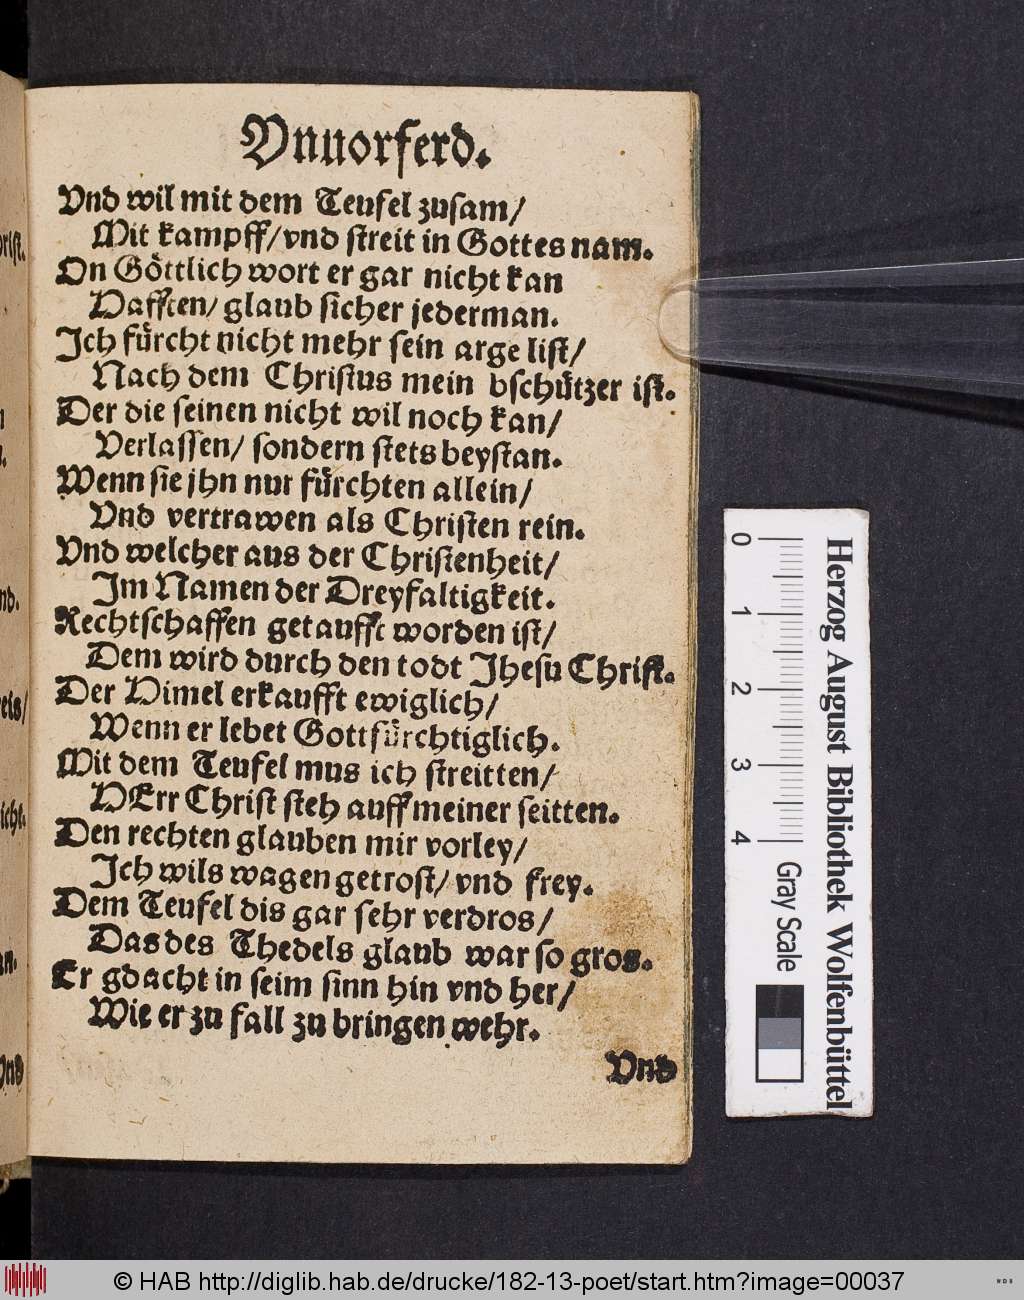 Vnuorferd.
Vnd wil mit dem Teufel zusam/
Mit kampff/ vnd streit in Gottes nam.
On Göttlich wort er gar nicht kan
Hafften/ glaub sicher jederman.
Ich fürcht nicht mehr sein arge list/
Nach dem Christus mein bschützer ist.
Der die seinen nicht wil noch kan/
Verlassen/ sondern stets beystan.
Wenn sie jhn nur fürchten allein/
Vnd vertrawen als Christen rein.
Vnd welcher aus der Christenheit/
Im Namen der Dreyfaltigkeit.
Rechtschaffen getaufft worden ist/
Dem wird durch den todt Jhesu Christ.
Der Himel erkaufft ewiglich/
Wenn er lebet Gottfürchtiglich.
Mit dem Teufel mus ich streitten/
HErr Christ steh auff meiner seitten.
Den rechten glauben mir vorley/
Ich wils wagen getrost/ vnd frey.
Dem Teufel dis gar sehr verdros/
Das des Thedels glaub war so gros.
Er gdacht in seim sinn hin vnd her/
Wie er zu fall zu bringen wehr.
Vnd
0 1 2 3 4
Gray Scale
Herzog August Bibliothek Wolfenbüttel
© HAB http://diglib.hab.de/drucke/182-13-poet/start.htm?image=00037